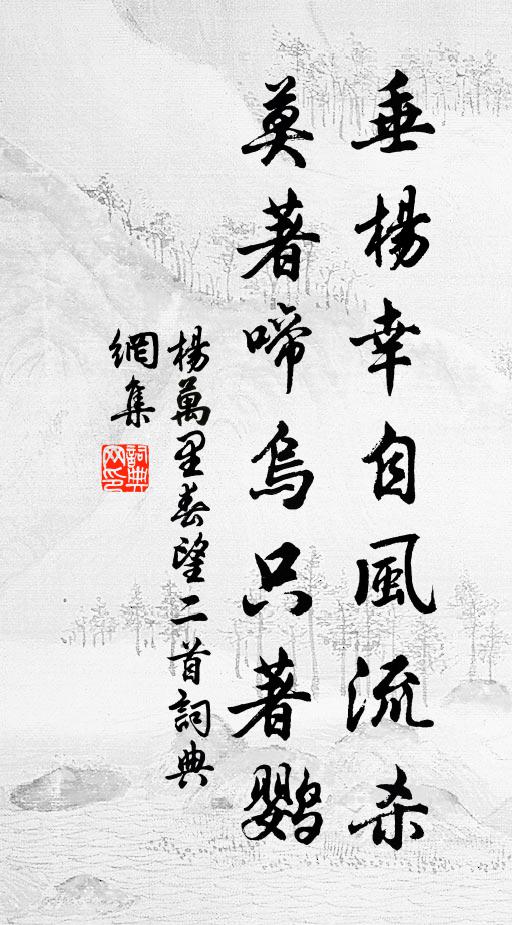 垂楊幸自風流杀
莫著啼烏只著鸚
楊萬里春望二首詞典
網集
詞典网印